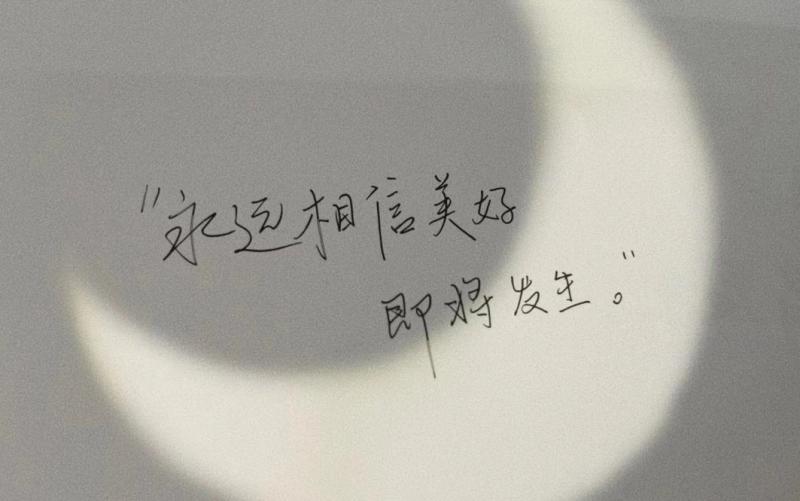 “永远相信美好
即将发生。”